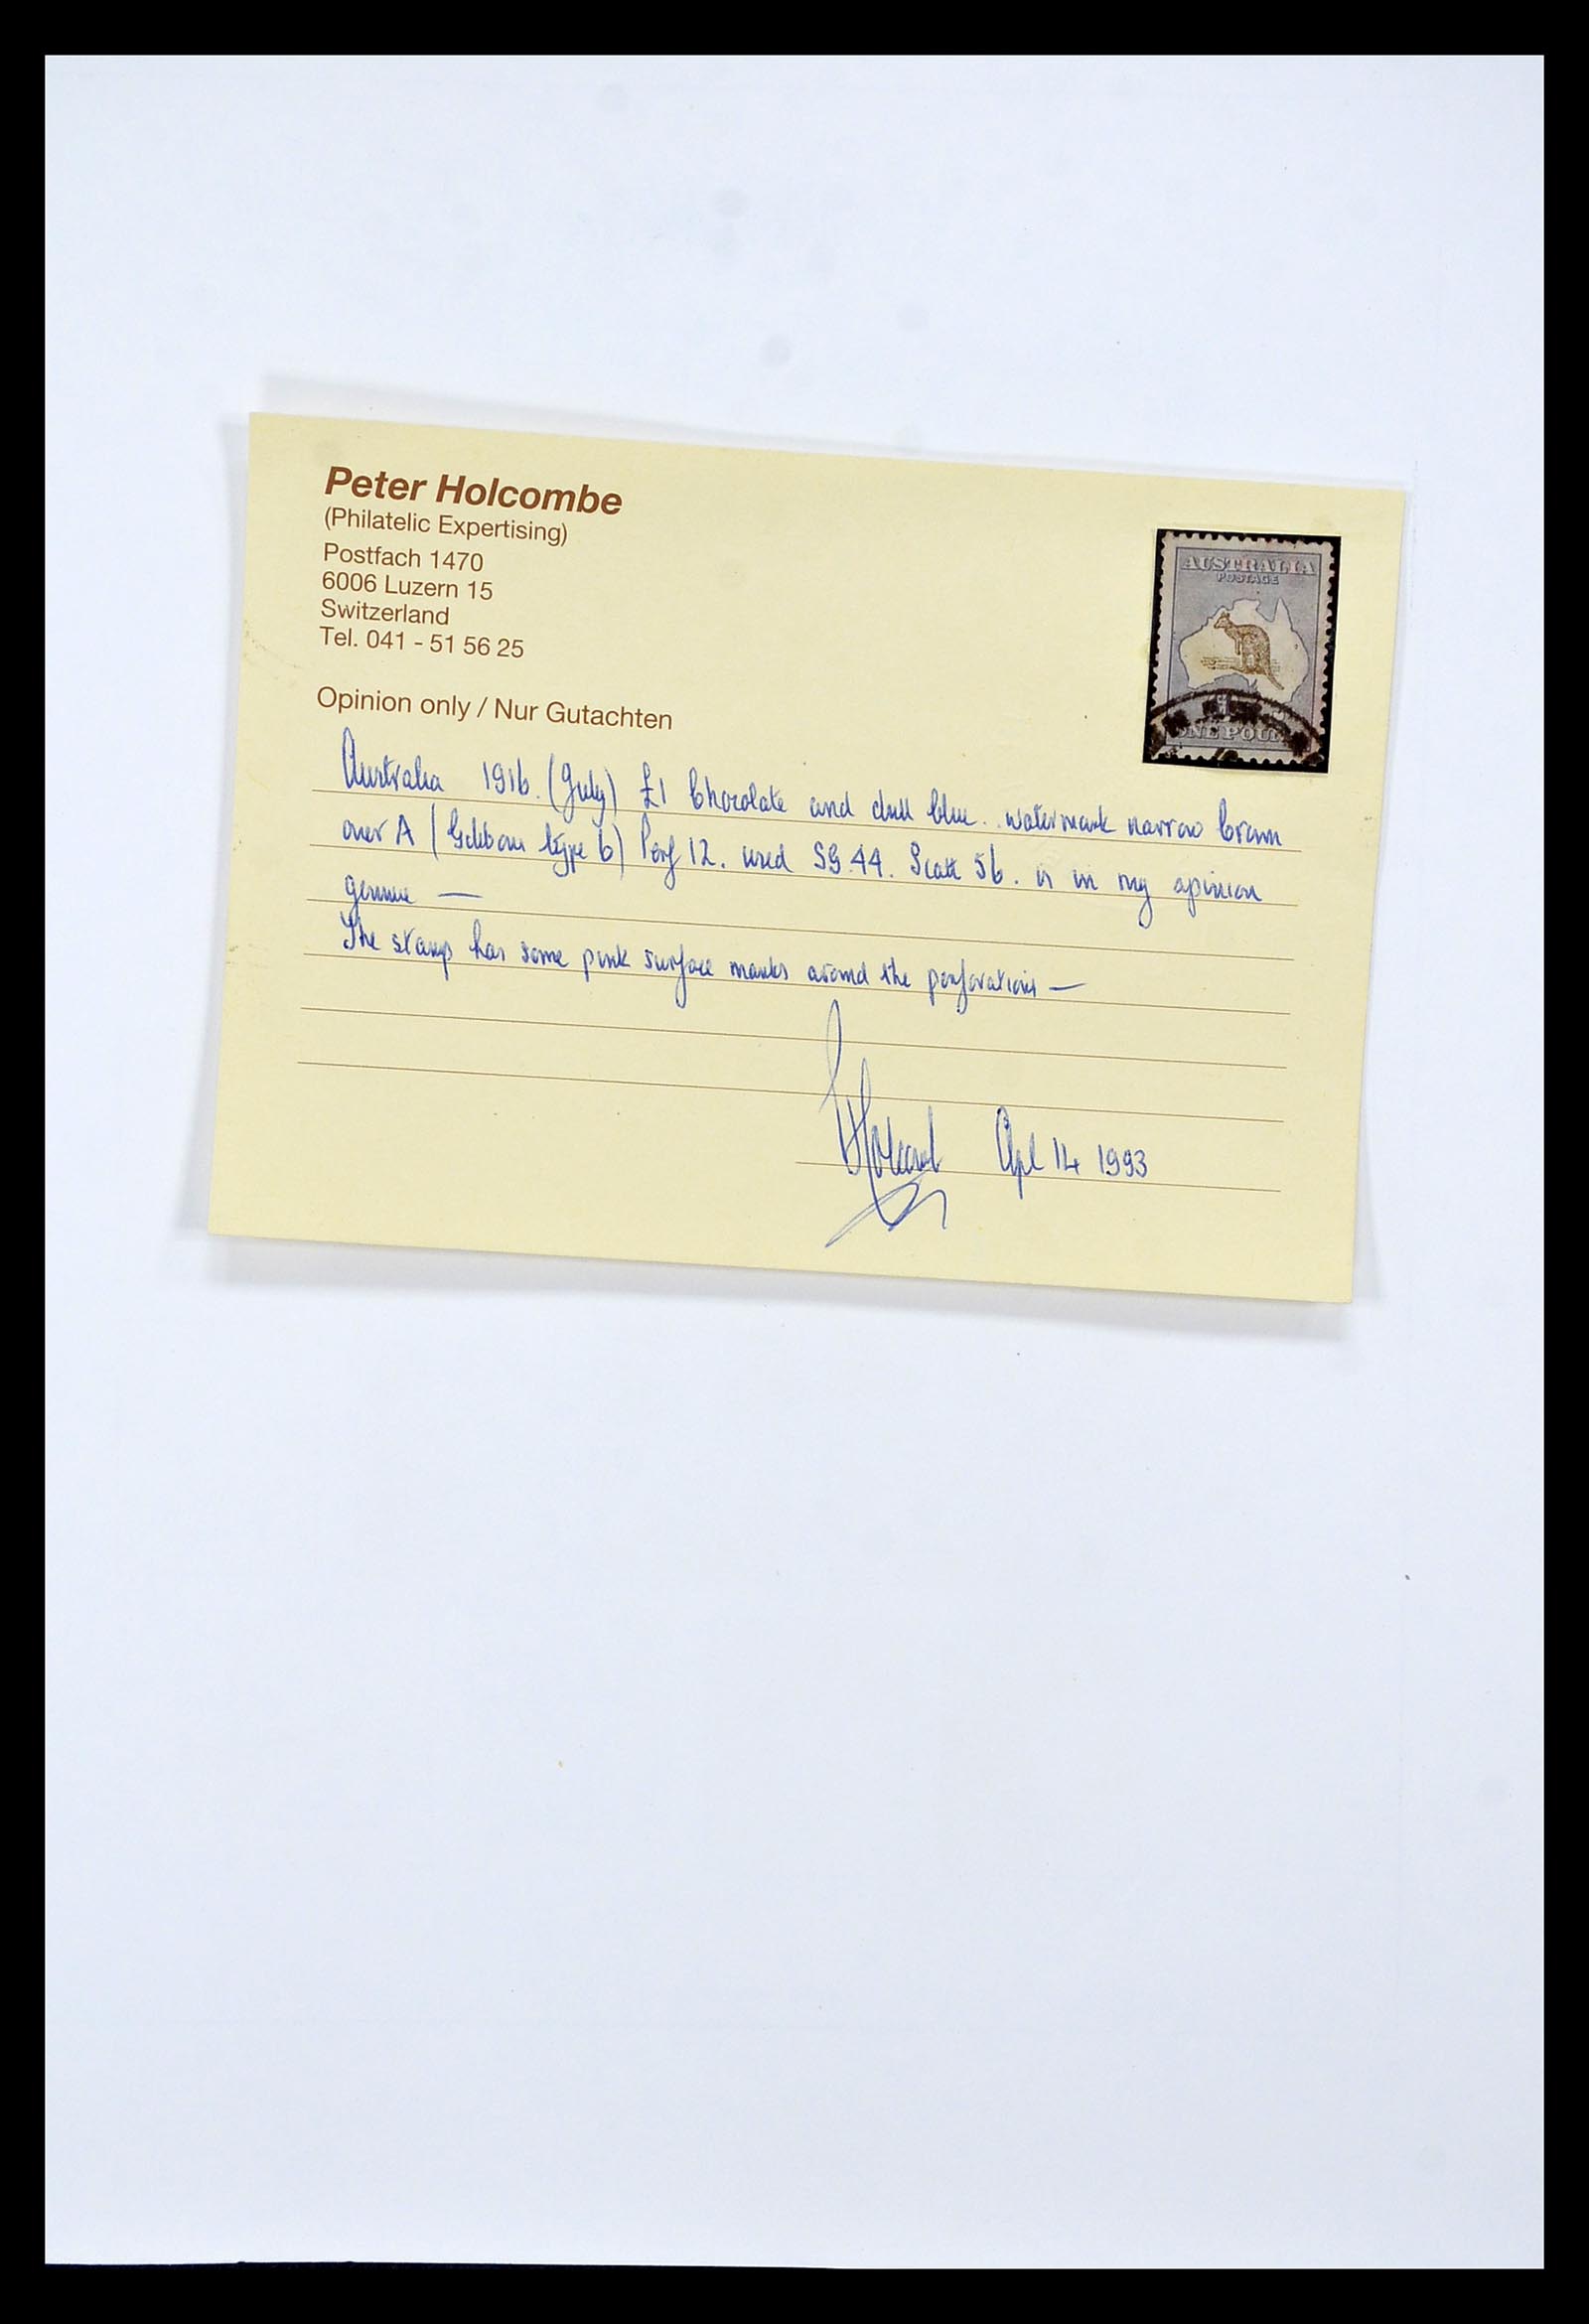 Peter Holcombe
(Philatelic Expertising)
Postfach 1470
6006 Luzern 15
Switzerland
Tel. 041 - 51 56 25
AUSTRALIA
POSTAGE
ONE POUND
Opinion only / Nur Gutachten
Australia 1916. (July) £1 Chocolate and dull blue. watermark narrow Crown
over A (Gibbons type 6) Perf 12. used SG.44. Scott 56. is in my opinion
genuine —
The stamp has some pink surface marks around the perforations —
14 1993